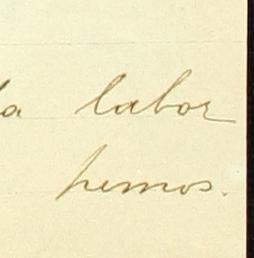 la labor
hemos.